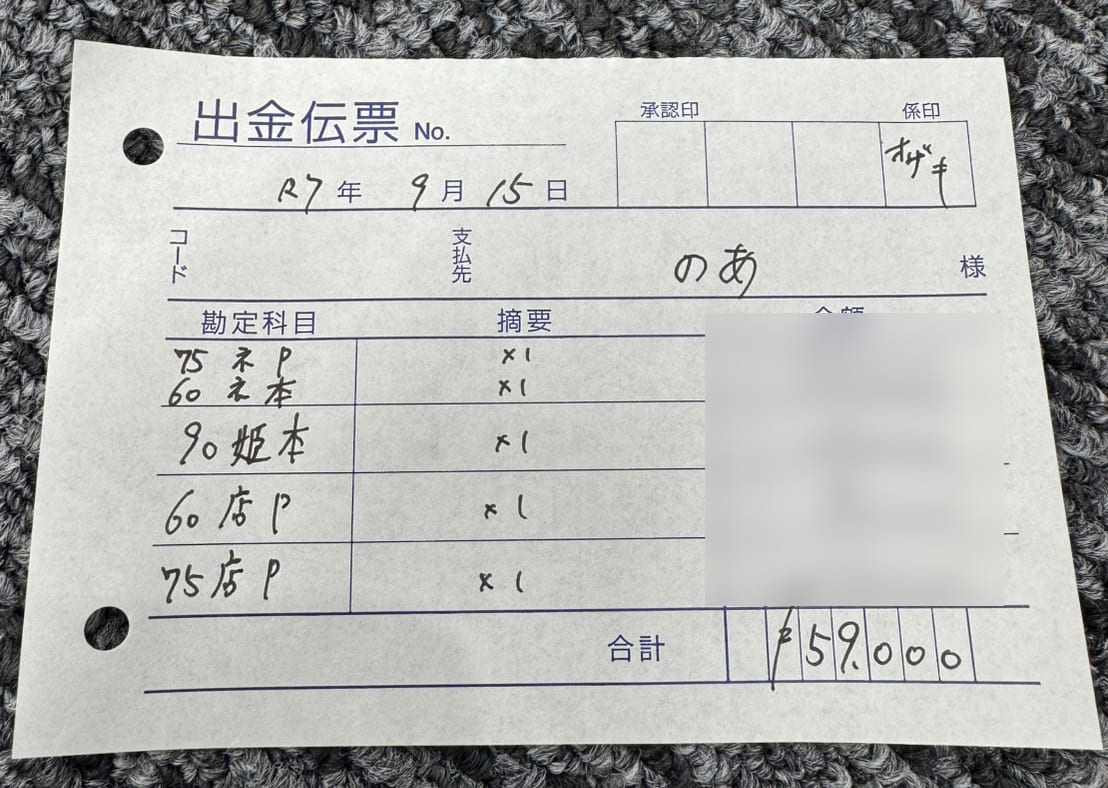 出金伝票 No.
承認印 係印
オザキ
R7年 9月 15日
コード 支払先 のあ 様
勘定科目 摘要 金額
75 ネ P ×1
60 ネ 本 ×1
90 姫本 ×1
60 店 P ×1
75 店 P ×1
合計 ¥59,000